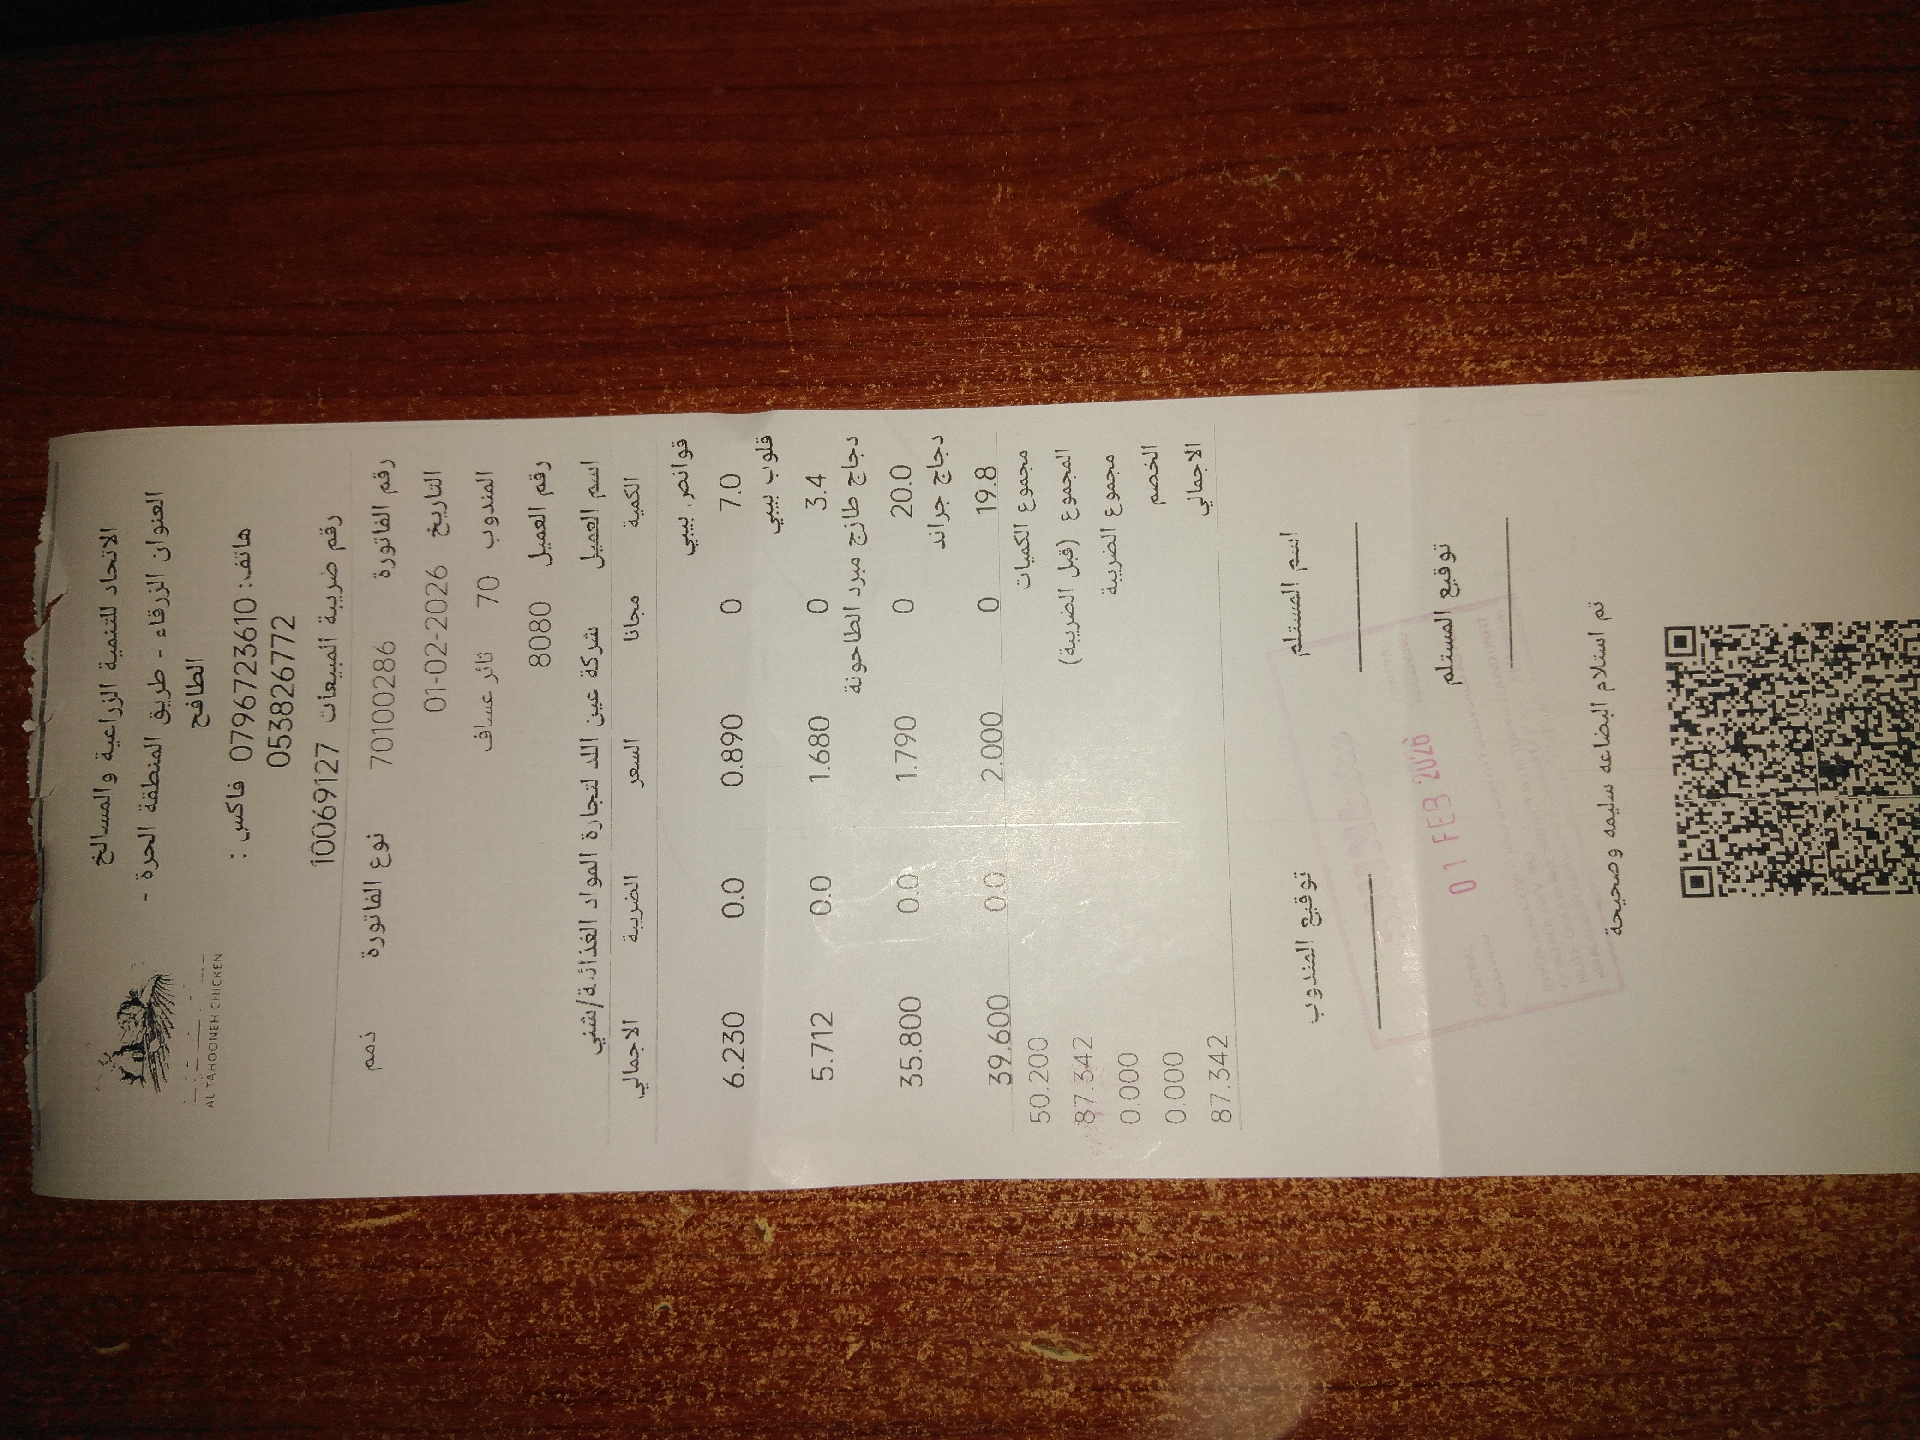 الاتحاد للتنمية الزراعية والمسالخ
العنوان الزرقاء - طريق المنطقة الحرة -
الطافح
هاتف: 0796723610 فاكس :
053826772
رقم ضريبة المبيعات 10069127
AL TAHOONEH CHICKEN
رقم الفاتورة 70100286 نوع الفاتورة ذمم
التاريخ 01-02-2026
المندوب 70 ثائر عساف
رقم العميل 8080
اسم العميل شركة عين اللد لتجارة المواد الغذائية/شني
الكمية مجانا السعر الضريبة الاجمالي
قوانص بيبي
7.0 0 0.890 0.0 6.230
قلوب بيبي
3.4 0 1.680 0.0 5.712
دجاج طازج مبرد الطاحونة
20.0 0 1.790 0.0 35.800
دجاج جراند
19.8 0 2.000 0.0 39.600
مجموع الكميات 50.200
المجموع (قبل الضريبة) 87.342
مجموع الضريبة 0.000
الخصم 0.000
الاجمالي 87.342
اسم المستلم توقيع المندوب
توقيع المستلم
01 FEB 2026
تم استلام البضاعه سليمه وصحيحة